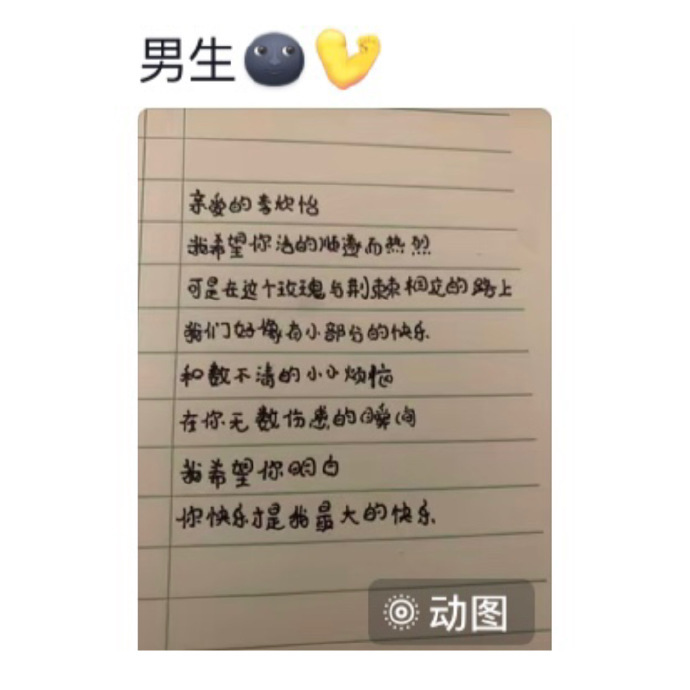 男生🌚🦶
亲爱的李炊怡
我希望你活的顺遂而热烈
可是在这个玫瑰与荆棘相交的路上
我们好像有小部分的快乐
和数不清的小小烦恼
在你无数伤感的瞬间
我希望你明白
你快乐才是我最大的快乐
动图